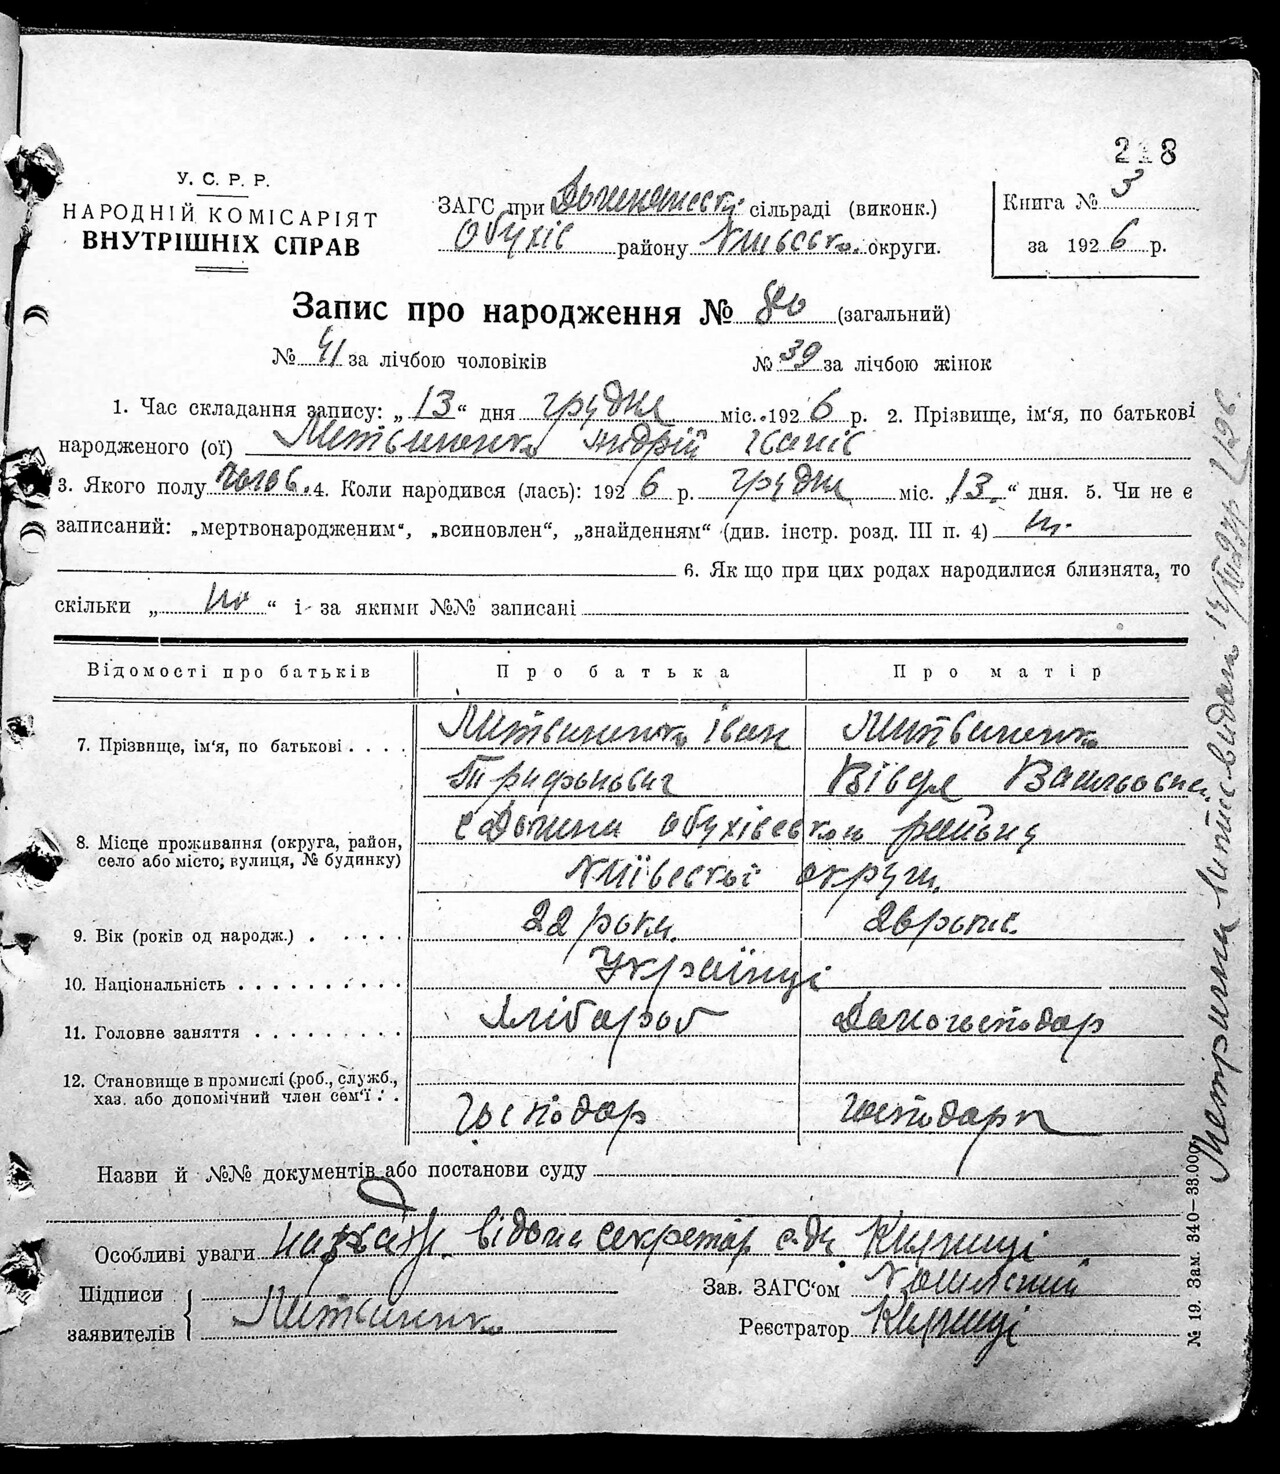 218
У. С. Р. Р.
НАРОДНІЙ КОМІСАРІЯТ
ВНУТРІШНІХ СПРАВ
ЗАГС при сільраді (виконк.)
Обухів району Київсько. округи.
Книга № 3
за 1926 р.
Запис про народження № 80 (загальний)
№ 41 за лічбою чоловіків № 39 за лічбою жінок
1. Час складання запису: „ 13 “ дня грудня міс. 1926 р. 2. Прізвище, ім'я, по батькові
народженого (ої) Литвиненко Андрій Іванів
3. Якого полу чолов. 4. Коли народився (лась): 1926 р. грудня міс. „13.“ дня. 5. Чи не є
записаний: „мертвонародженим“, „всиновлен“, „знайденням“ (див. інстр. розд. III п. 4) ні.
6. Як що при цих родах народилися близнята, то
скільки „ “ і за якими №№ записані
Відомості про батьків Про батька Про матір
7. Прізвище, ім'я, по батькові . . . . Литвиненко Іван Литвиненко
Трифонович Вівдя Васильовна
8. Місце проживання (округа, район, село або місто, вулиця, № будинку) с Долина Обухівського району
Київської округи.
9. Вік (років од народж.) . . . . . 22 роки.
10. Національність . . . . . . . . . . Українці
11. Головне заняття . . . . . . . . . Хлібороб Домогосподар
12. Становище в промислі (роб., служб.,
хаз. або допомічний член сем'ї . . Господар господарка
Назви й №№ документів або постанови суду
Особливі уваги секретар
Підписи
заявителів Литвиненко
Зав. ЗАГС'ом
Реєстратор
№ 19. Зам. 340—33.000.